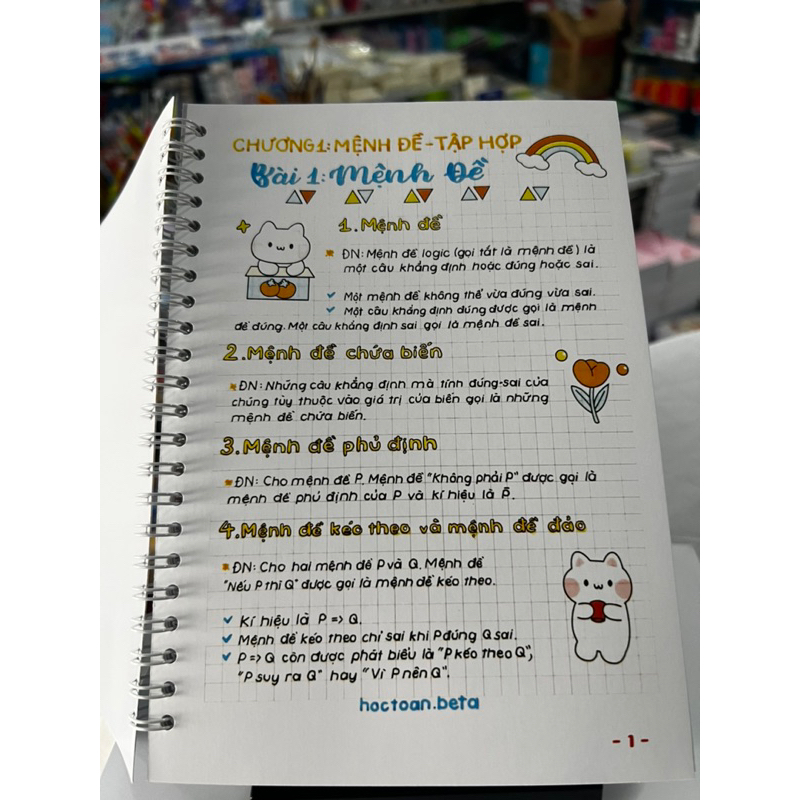 CHƯƠNG 1: MỆNH ĐỀ - TẬP HỢP
Bài 1: Mệnh Đề
1. Mệnh đề
ĐN: Mệnh đề logic (gọi tắt là mệnh đề) là
một câu khẳng định hoặc đúng hoặc sai.
Một mệnh đề không thể vừa đúng vừa sai.
Một câu khẳng định đúng được gọi là mệnh
đề đúng. Một câu khẳng định sai gọi là mệnh đề sai.
2. Mệnh đề chứa biến
ĐN: Những câu khẳng định mà tính đúng-sai của
chúng tùy thuộc vào giá trị của biến gọi là những
mệnh đề chứa biến.
3. Mệnh đề phủ định
ĐN: Cho mệnh đề P. Mệnh đề "Không phải P" được gọi là
mệnh đề phủ định của P và kí hiệu là P̄.
4. Mệnh đề kéo theo và mệnh đề đảo
ĐN: Cho hai mệnh đề P và Q. Mệnh đề
"Nếu P thì Q" được gọi là mệnh đề kéo theo.
Kí hiệu là P => Q.
Mệnh đề kéo theo chỉ sai khi P đúng Q sai.
P => Q còn được phát biểu là "P kéo theo Q",
"P suy ra Q" hay "Vì P nên Q".
hoctoan.beta
- 1 -